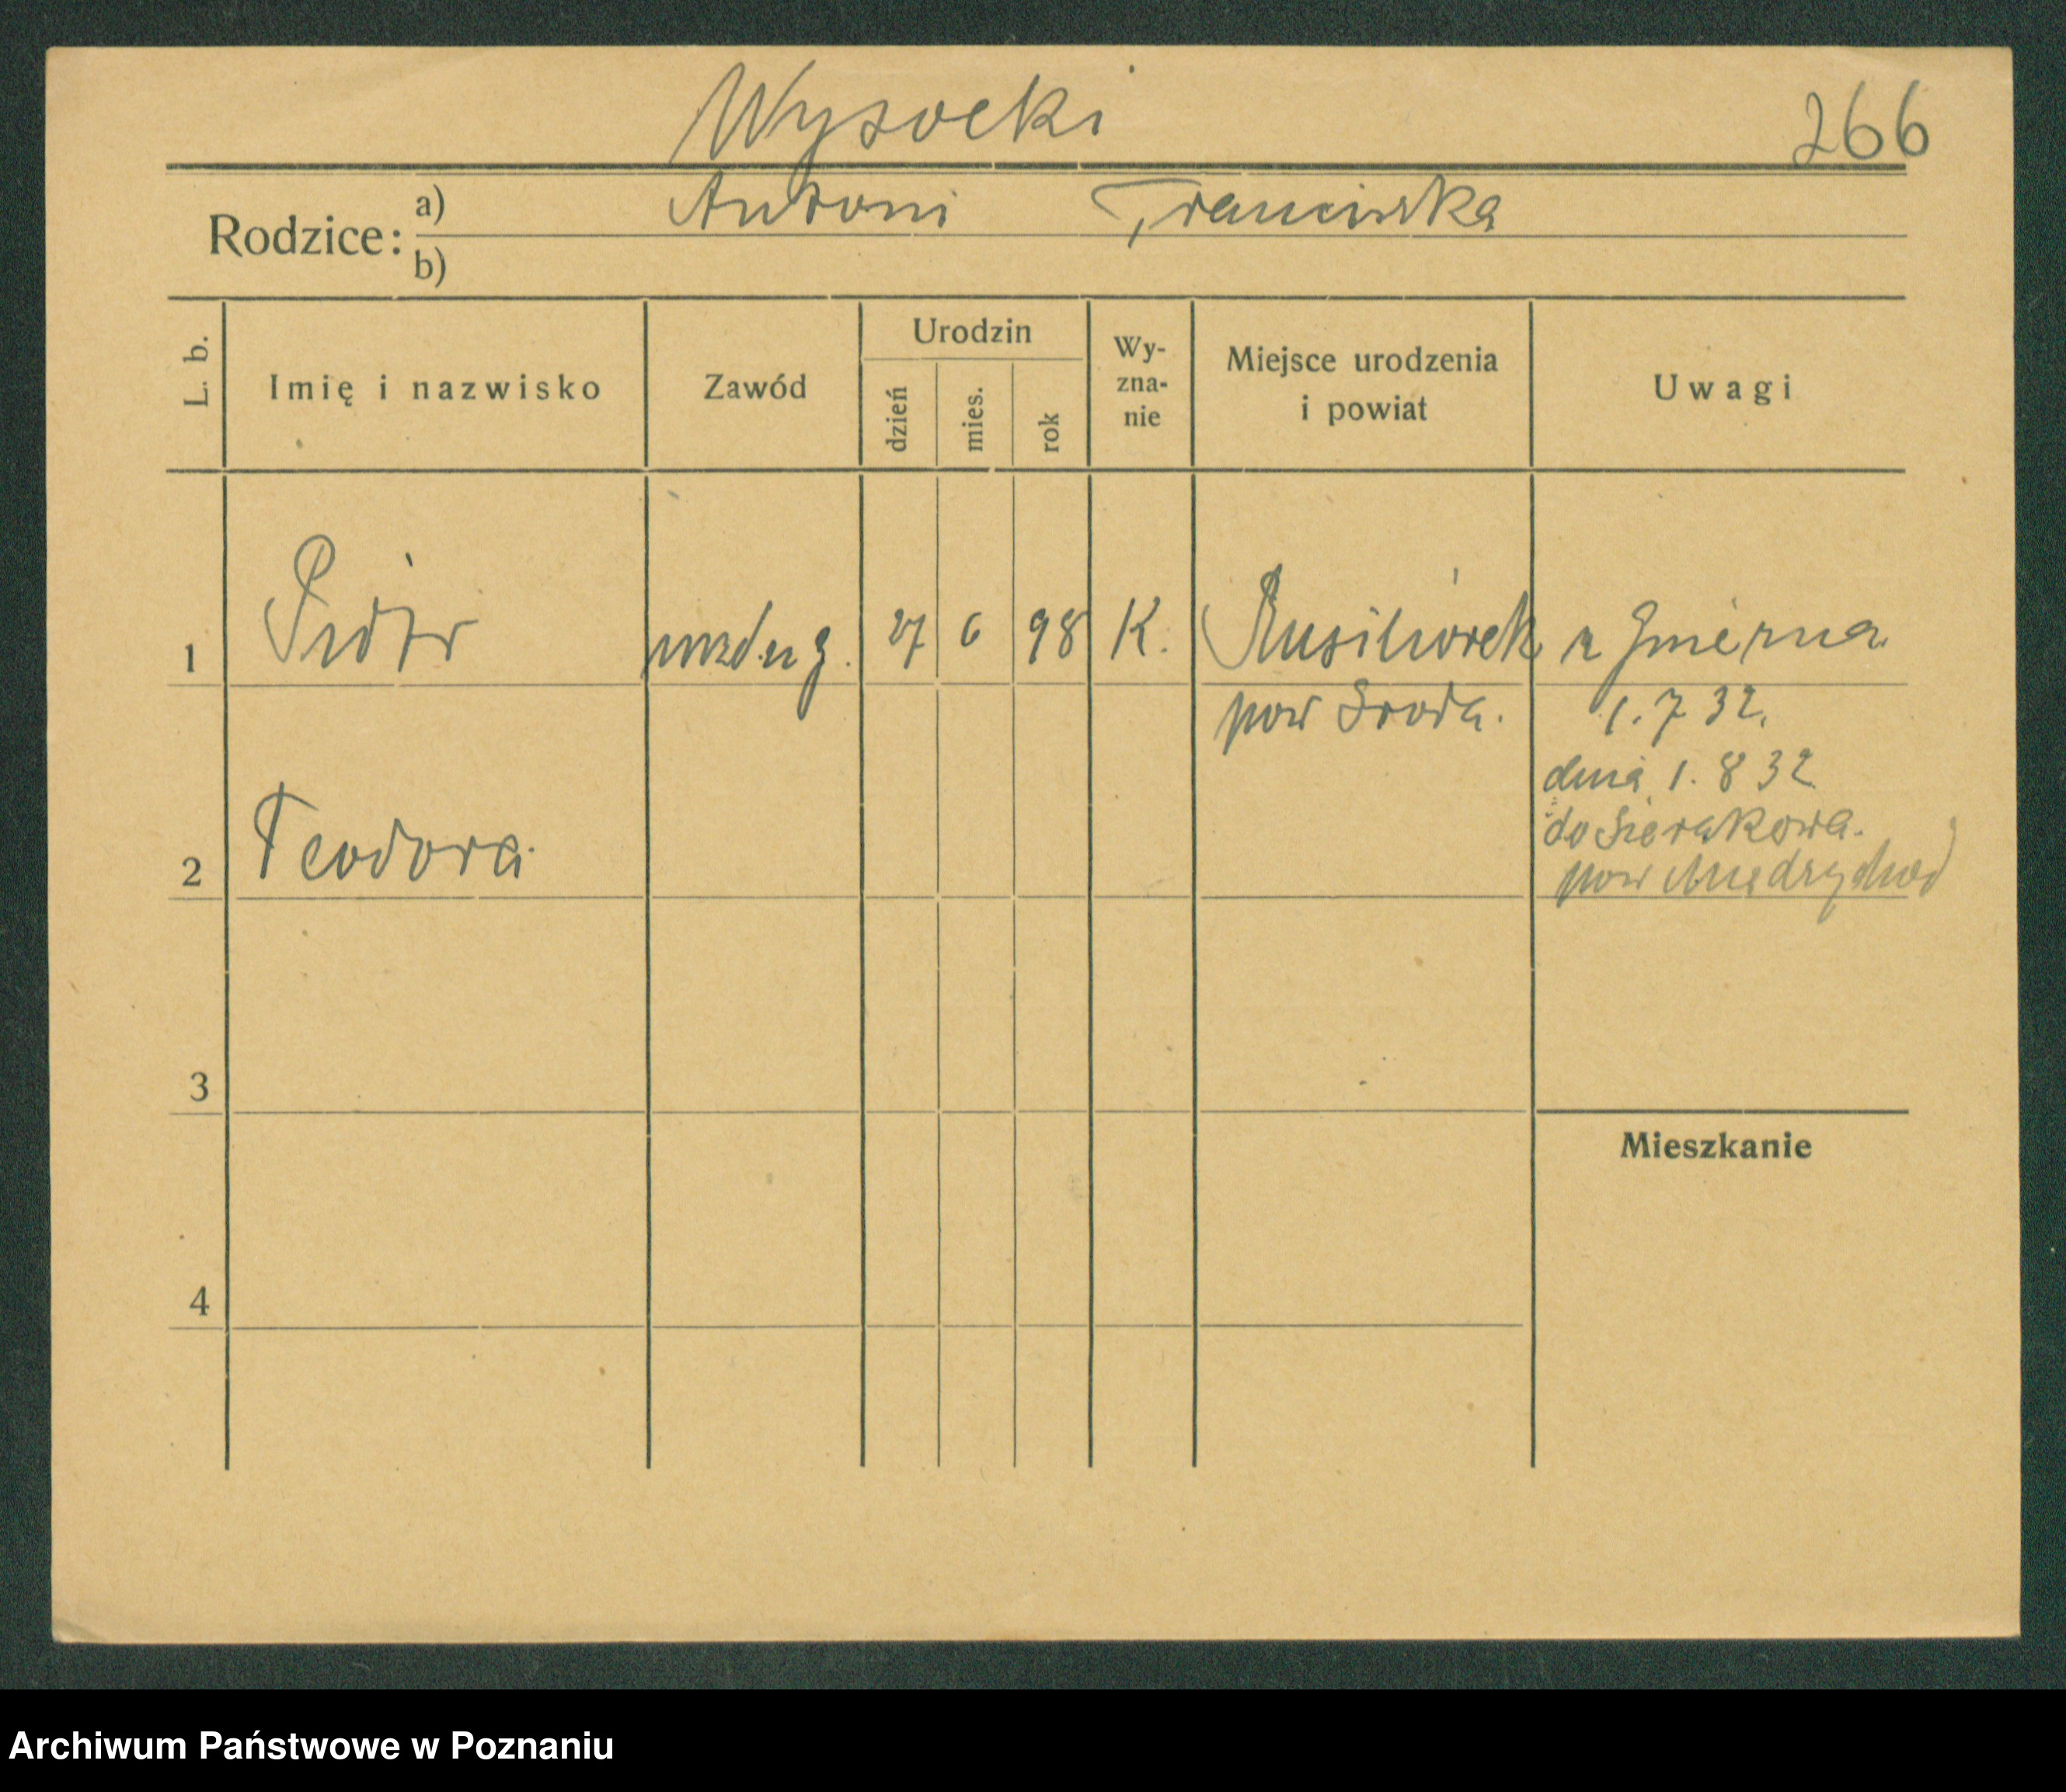 Wysocki
266
Rodzice:
a) Antoni Franciszka
b)
L. b.
Imię i nazwisko
Zawód
Urodzin
dzień
mies.
rok
Wy-
zna-
nie
Miejsce urodzenia
i powiat
Uwagi
1 Piótr 27 6 98 K.
pow Środa. 1.7 32.
dnia 1. 8 32
do Sierakowa.
2 Teodora pow Międzychod
3
Mieszkanie
4
Archiwum Państwowe w Poznaniu